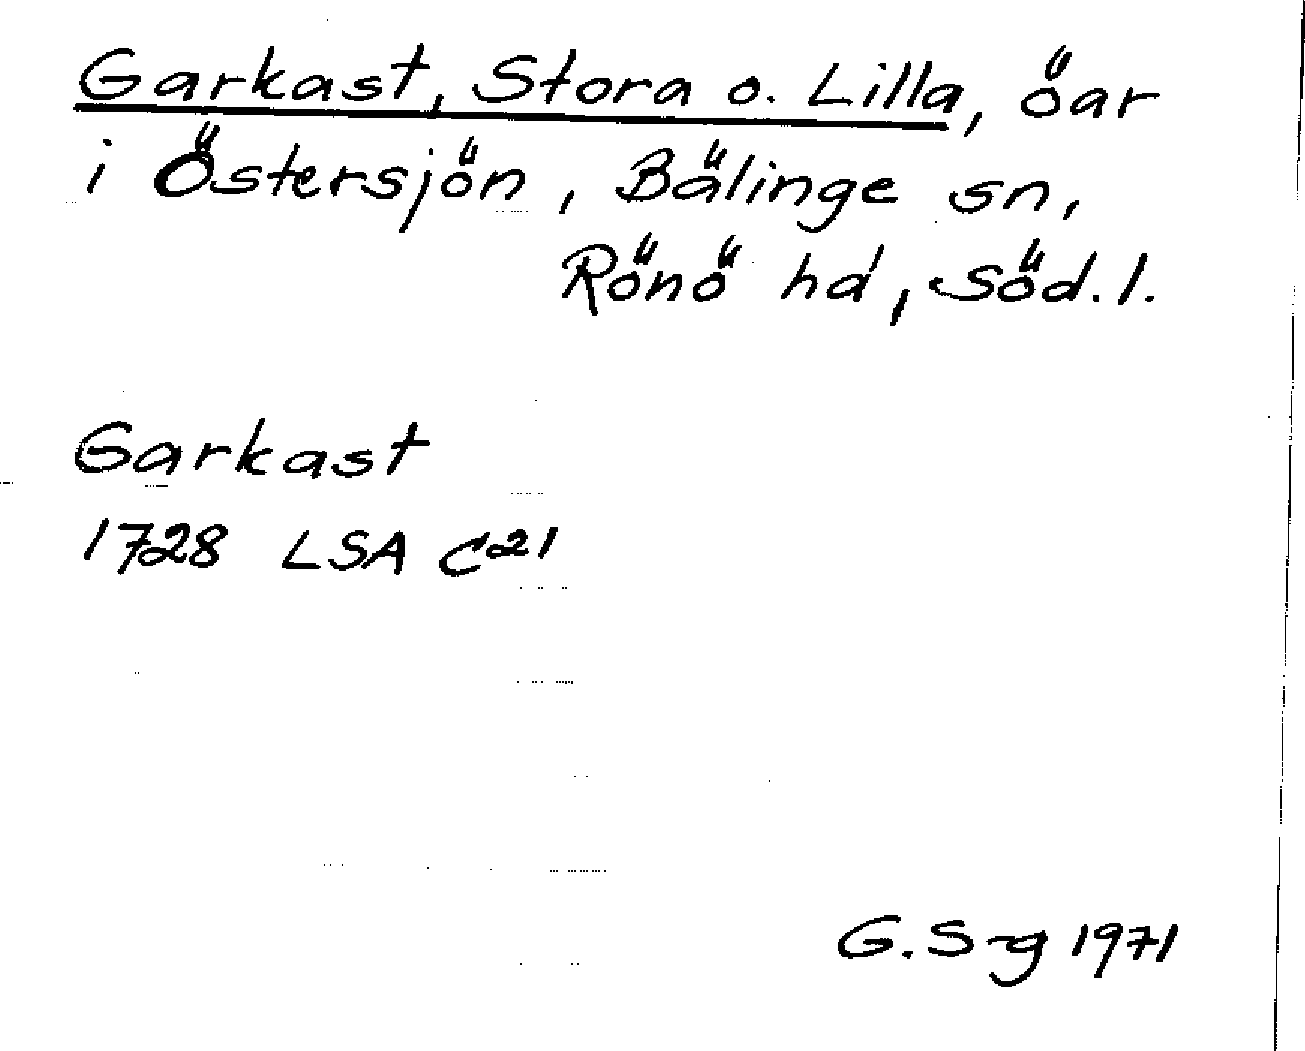 Garkast, Stora o. Lilla, öar
i Östersjön, Bälinge sn,
Rönö hd, Söd. l.
Garkast
1728 LSA C21
G. S-g 1971